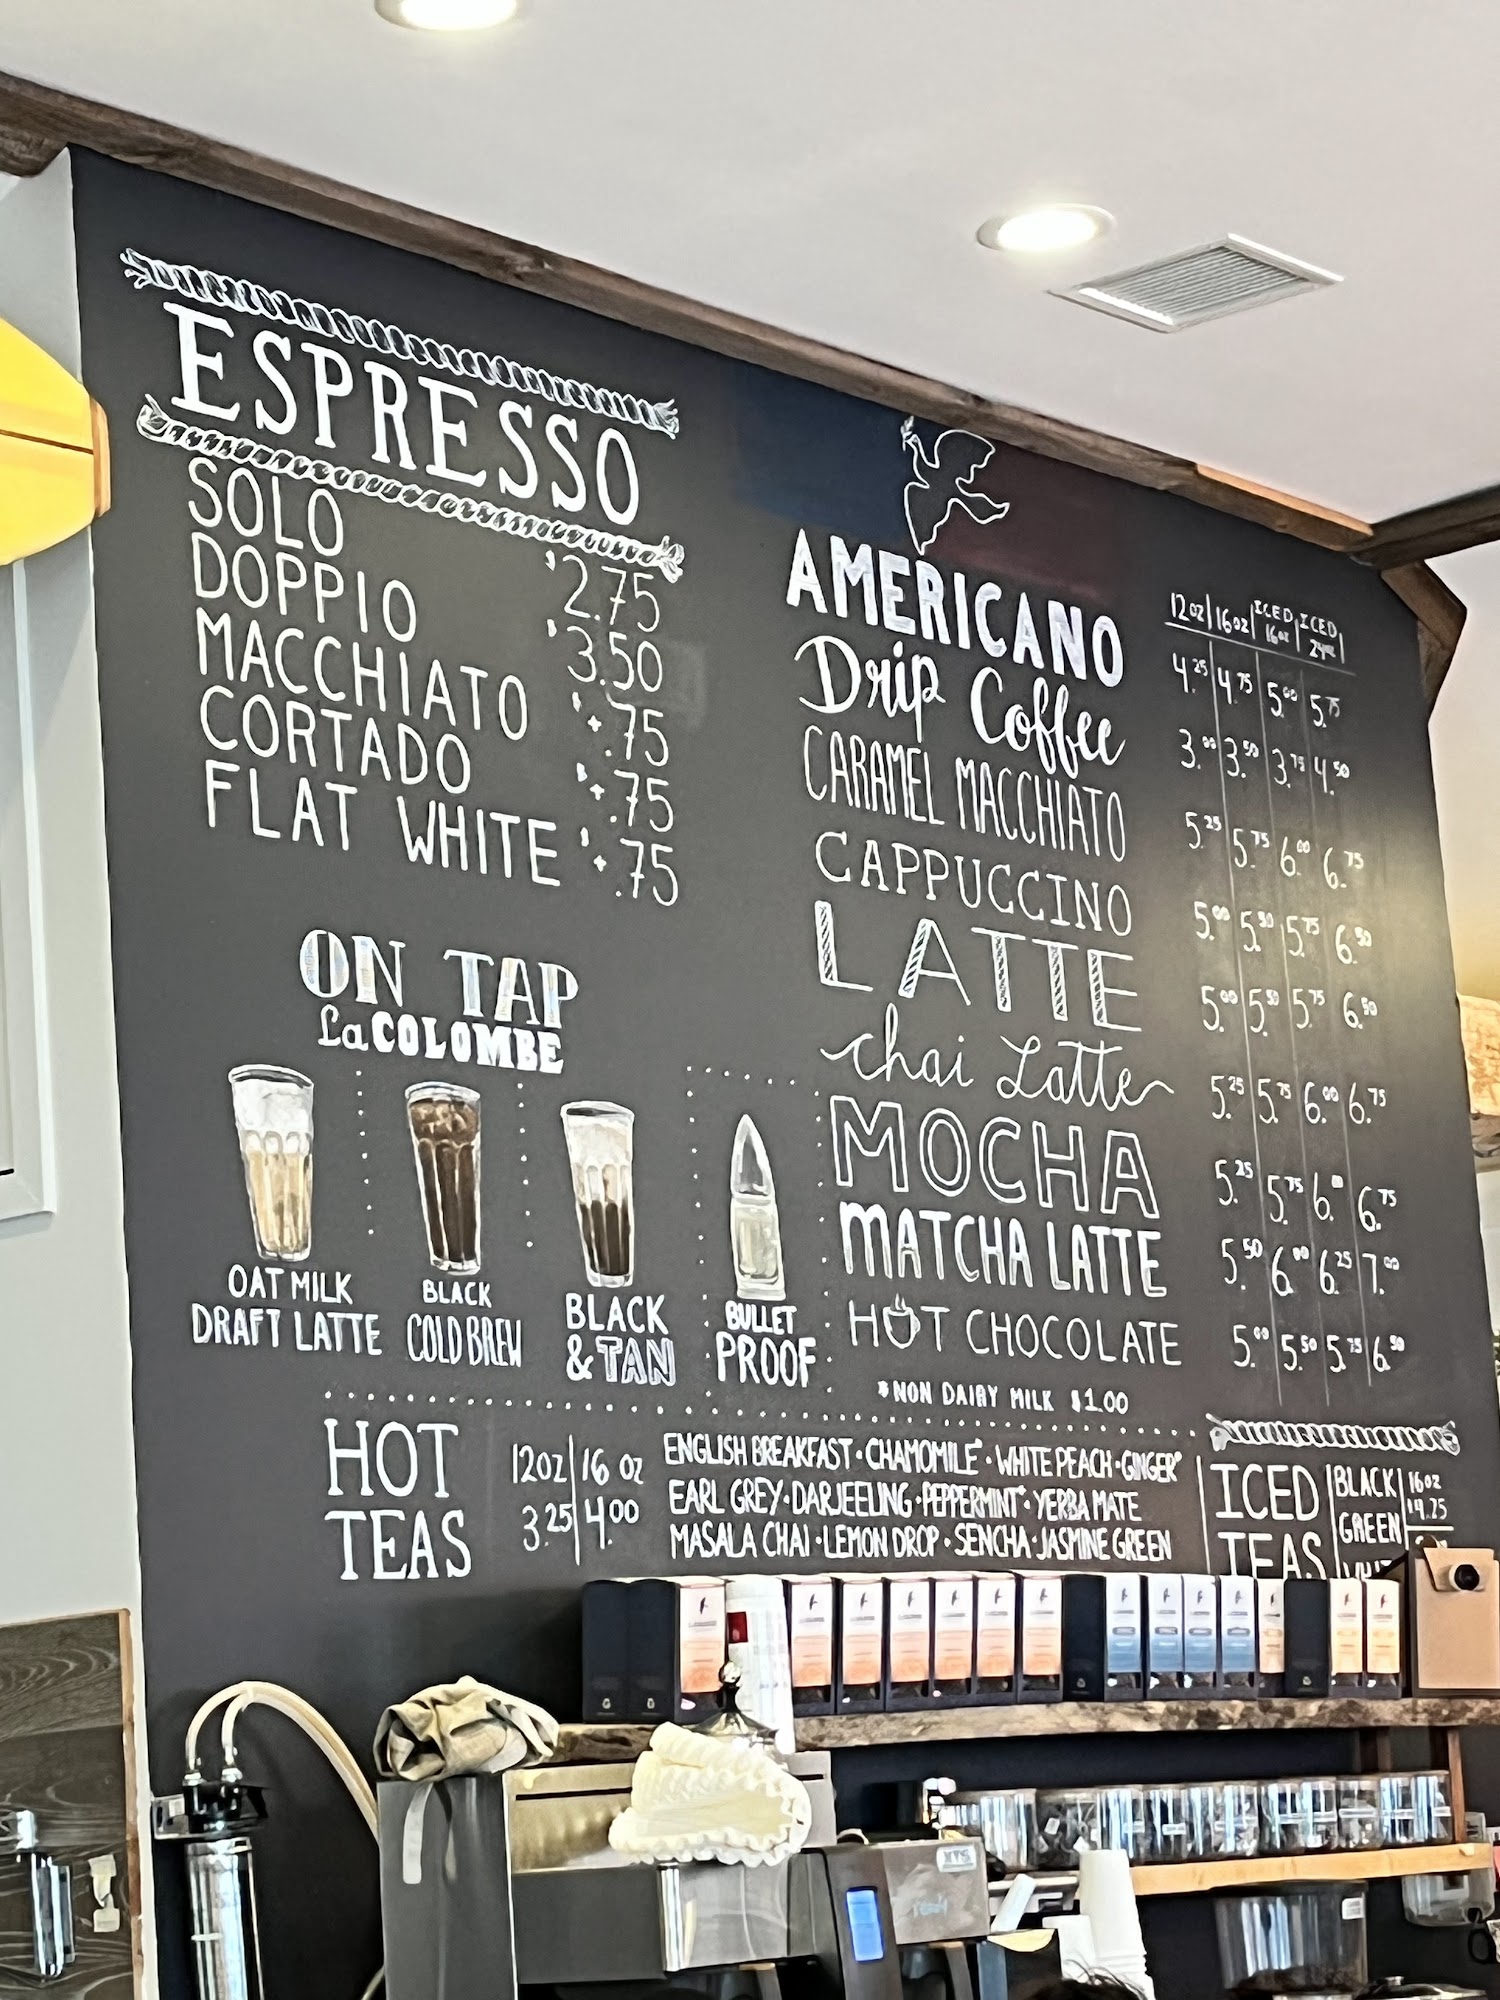 ESPRESSO
SOLO $2.75
DOPPIO $3.50
MACCHIATO $+.75
CORTADO $+.75
FLAT WHITE $+.75
ON TAP
La COLOMBE
OAT MILK
DRAFT LATTE
BLACK
COLD BREW
BLACK
& TAN
BULLET
PROOF
12oz 16oz ICED 16oz ICED 24oz
AMERICANO 4.25 4.75 5.00 5.75
Drip Coffee 3.00 3.50 3.75 4.50
CARAMEL MACCHIATO 5.25 5.75 6.00 6.75
CAPPUCCINO 5.00 5.50 5.75 6.50
LATTE 5.00 5.50 5.75 6.50
chai Latte 5.25 5.75 6.00 6.75
MOCHA 5.25 5.75 6.00 6.75
MATCHA LATTE 5.50 6.00 6.25 7.00
HOT CHOCOLATE 5.00 5.50 5.75 6.50
*NON DAIRY MILK $1.00
HOT
TEAS
12oz 16 oz
3.25 4.00
ENGLISH BREAKFAST · CHAMOMILE* · WHITE PEACH · GINGER*
EARL GREY · DARJEELING · PEPPERMINT* · YERBA MATE
MASALA CHAI · LEMON DROP · SENCHA · JASMINE GREEN
ICED
TEAS
BLACK
GREEN
16oz
$4.25